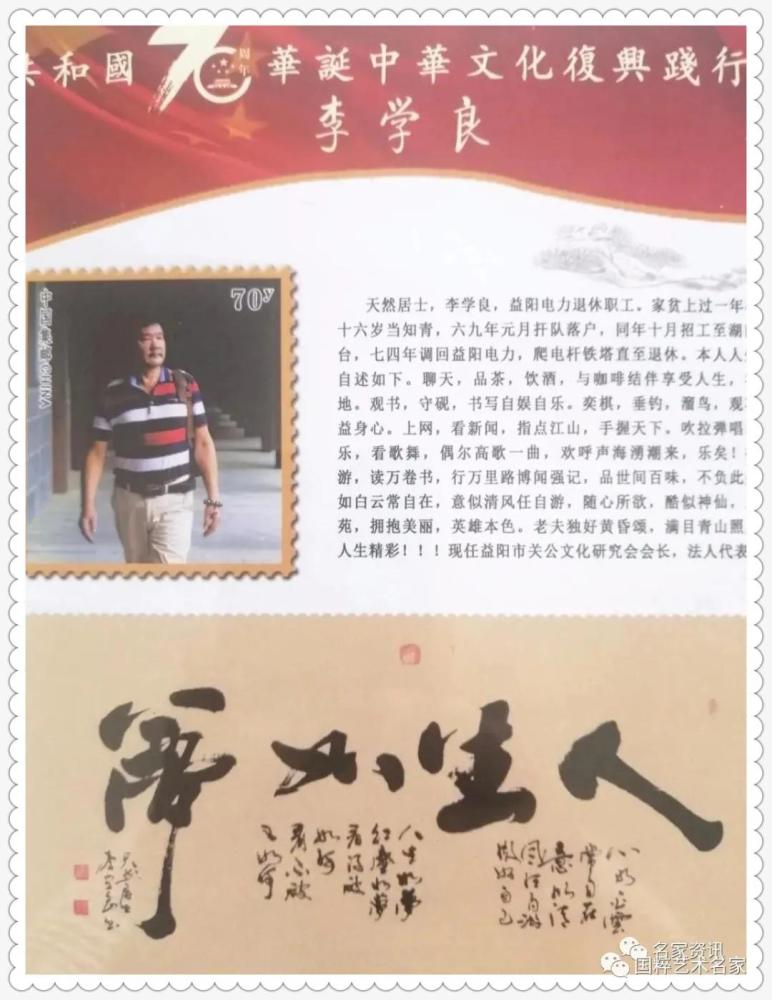 共和國70周年華誕中華文化復興踐行
李学良
70Y
中国邮票CHINA
天然居士，李学良，益阳电力退休职工。家贫上过一年
十六岁当知青，六九年元月扦队落户，同年十月招工至湖
台，七四年调回益阳电力，爬电杆铁塔直至退休。本人人
自述如下。聊天，品茶，饮酒，与咖啡结伴享受人生，
地。观书，守砚，书写自娱自乐。奕棋，垂钓，溜鸟，观
益身心。上网，看新闻，指点江山，手握天下。吹拉弹唱
乐，看歌舞，偶尔高歌一曲，欢呼声海湧潮来，乐矣！
游，读万卷书，行万里路博闻强记，品世间百味，不负此
如白云常自在，意似清风任自游，随心所欲，酷似神仙，
苑，拥抱美丽，英雄本色。老夫独好黄昏颂，满目青山照
人生精彩！！！现任益阳市关公文化研究会会长，法人代表
人生如
心如白雲
常自在
意似清
風任自游
做好自己
人生如夢
红塵如夢
看得破
如何
看不破
又如何
名家资讯
国粹艺术名家